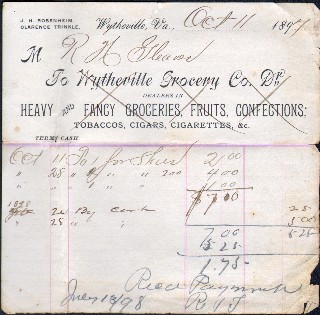 J. H. ROSENHEIM.
CLARENCE TRINKLE.
Wytheville, Va., Oct 11 1897
M R H
To Wytheville Grocery Co. Dr.
DEALERS IN
HEAVY AND FANCY GROCERIES, FRUITS, CONFECTIONS,
TOBACCOS, CIGARS, CIGARETTES, &c.
TERMS CASH
Oct 11 To 1 2 00
" 28 " 2 " " 200 4 00
" " 1 " " 1 00
$7 00
1898
26 By cash 25
" 25 " " 5 00
7 00 5 25
5 25
1.75
Recd Payment
98